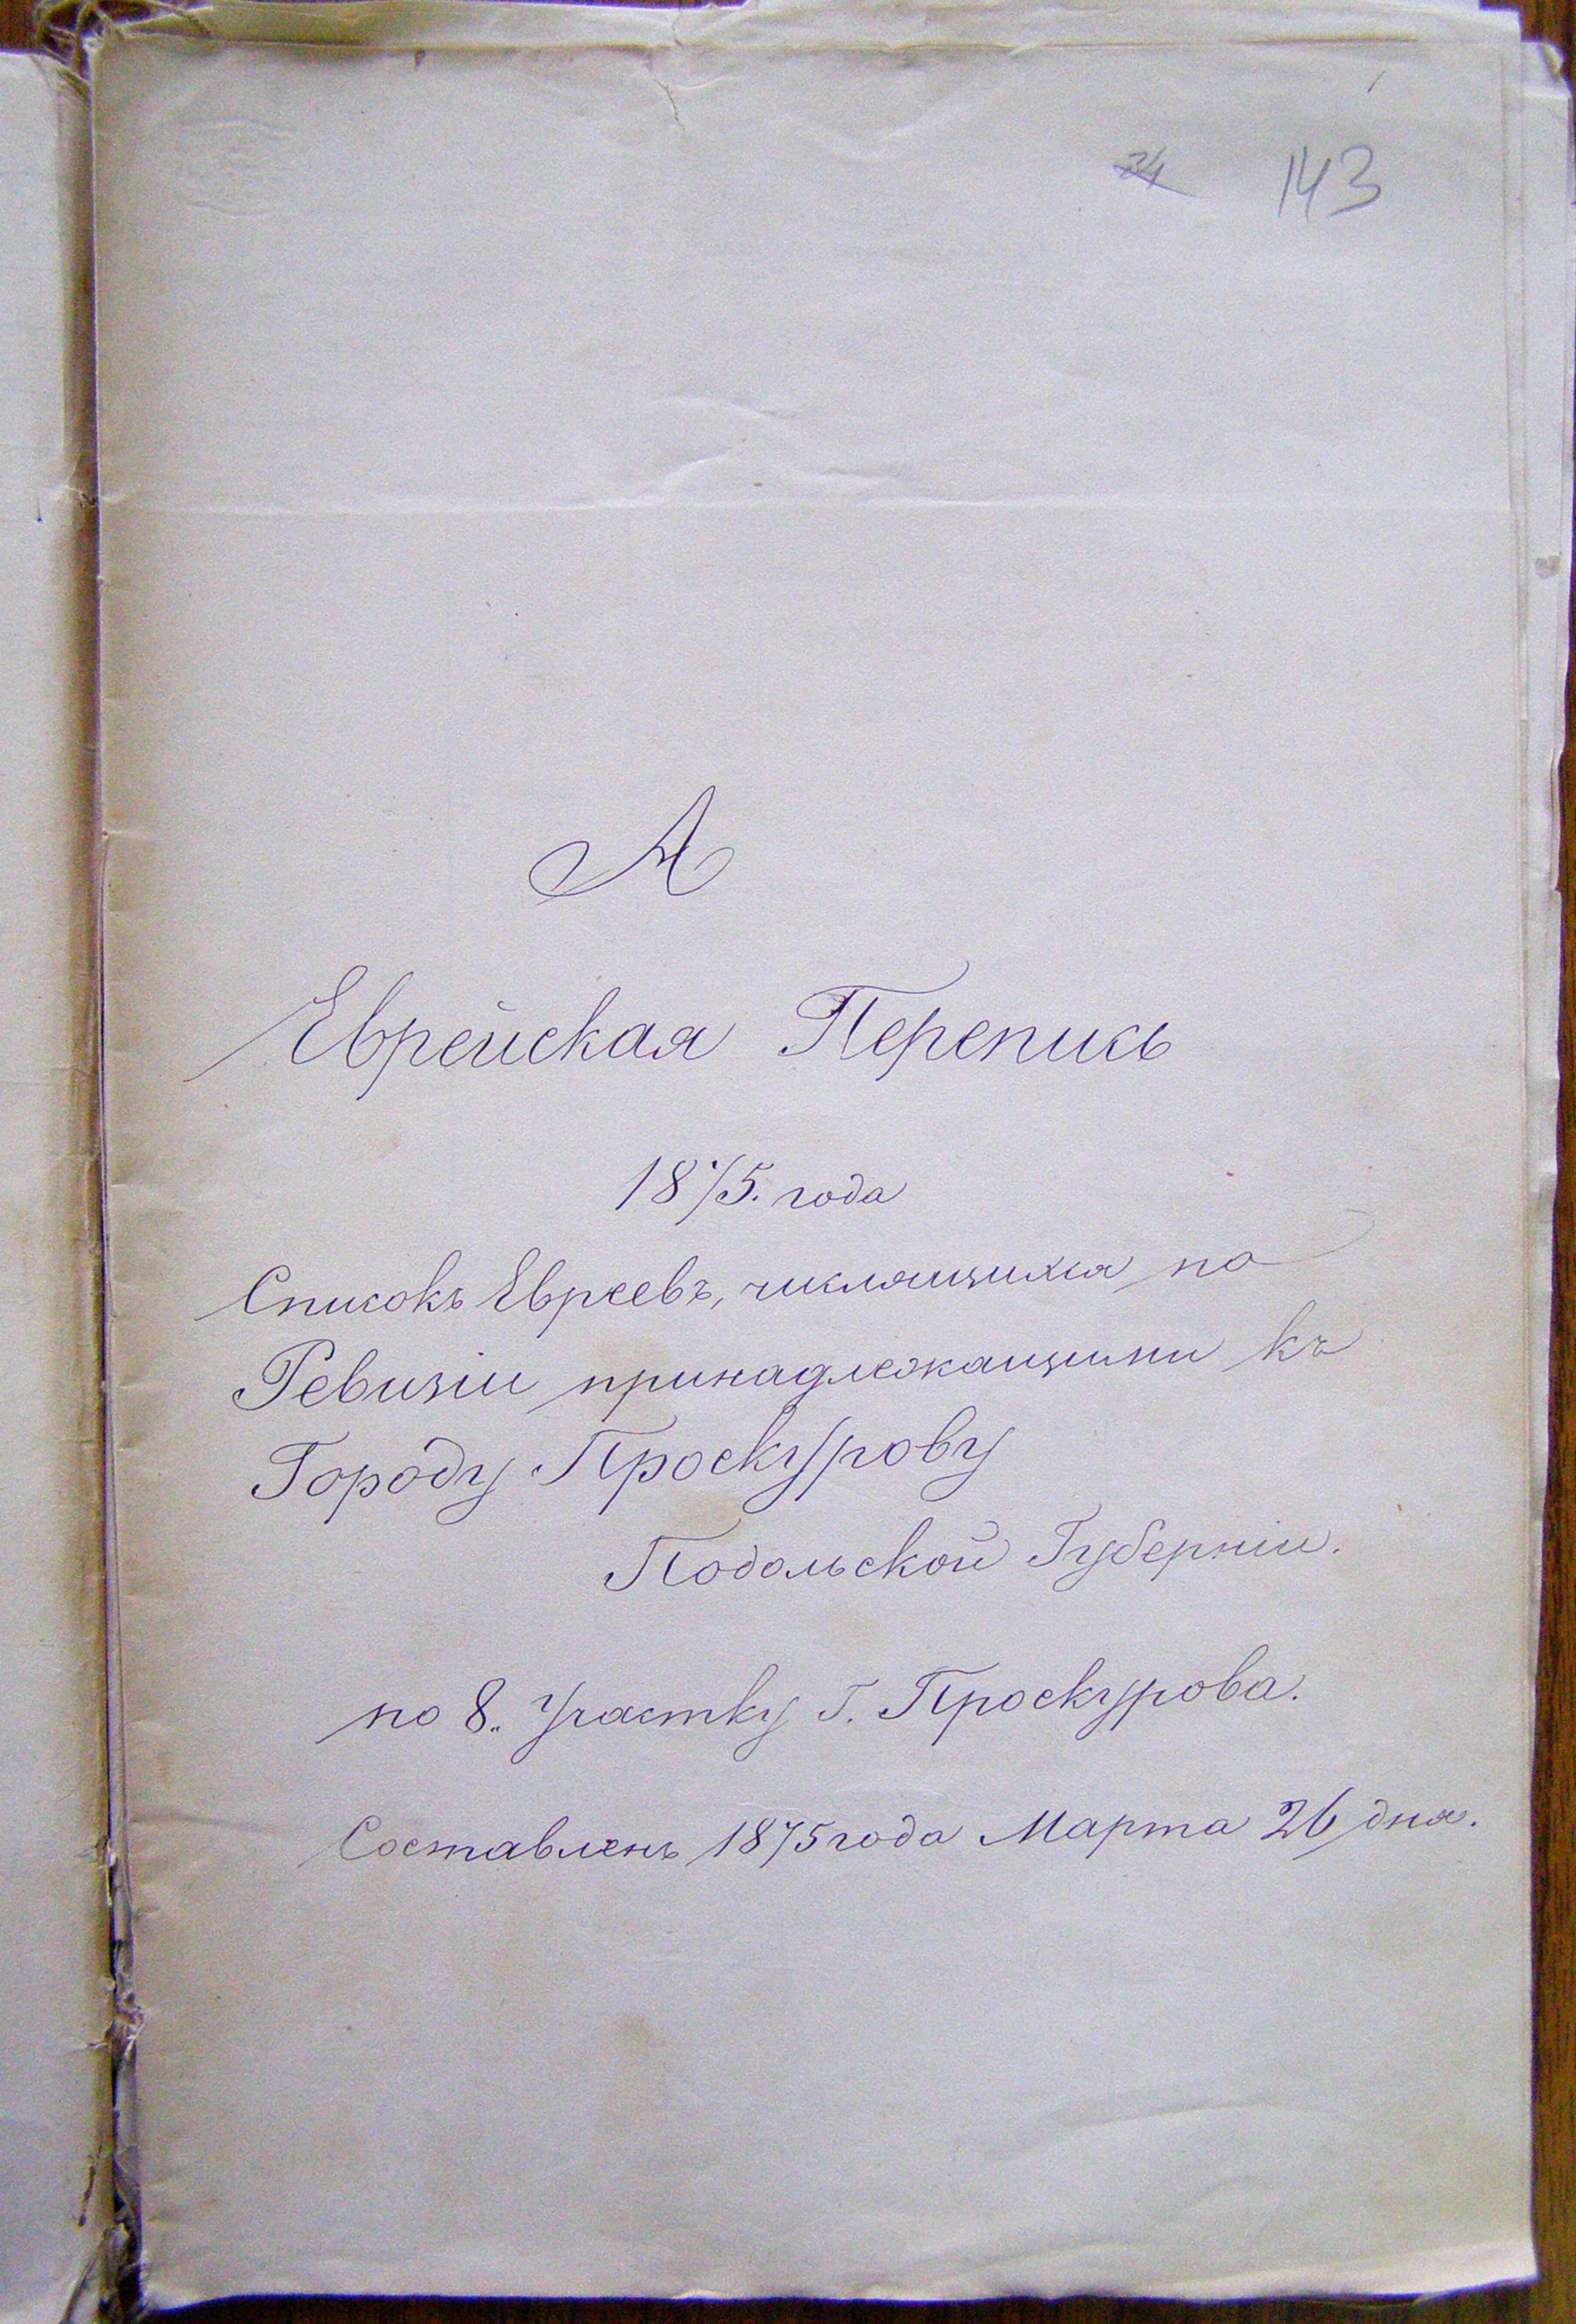 34 143
А
Еврейская Перепись
1875. года
Списокъ Евреевъ, числящихся по
Ревизіи принадлежащими къ
Городу Проскурову
Подольской Губерніи.
по 8. Участку Г. Проскурова.
Составленъ 1875 года Марта 26 дня.